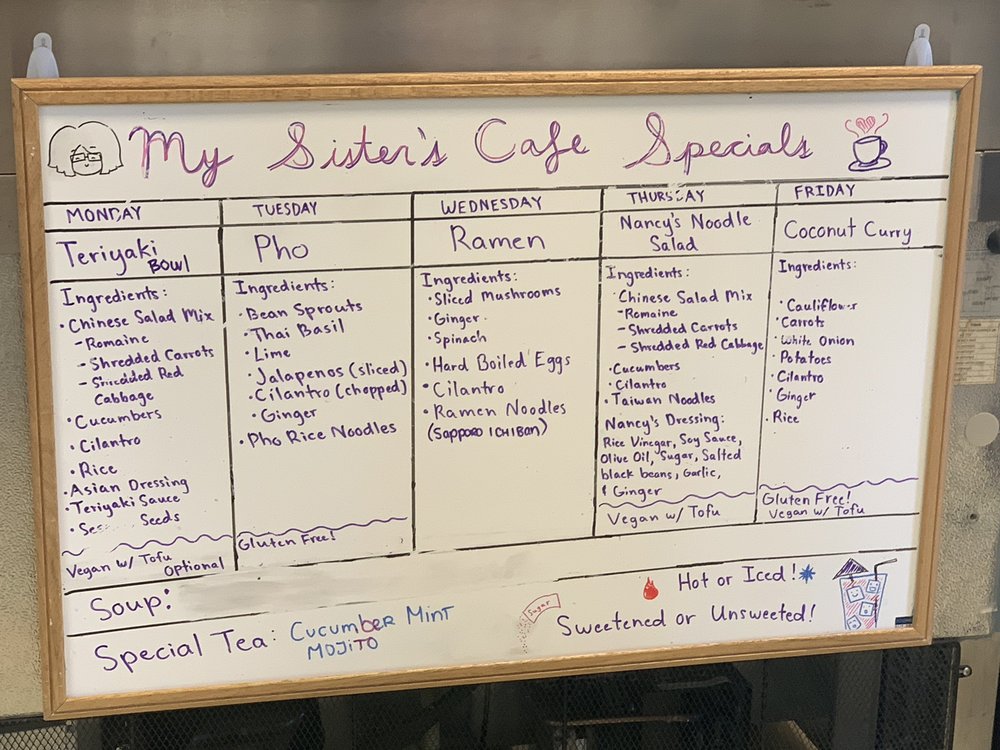 My Sister's Cafe Specials
MONDAY
Teriyaki
BOWL
Ingredients:
• Chinese Salad Mix
- Romaine
- Shredded Carrots
- Shredded Red
Cabbage
• Cucumbers
• Cilantro
• Rice
• Asian Dressing
• Teriyaki Sauce
• Seeds
Vegan w/ Tofu
Optional
TUESDAY
Pho
Ingredients:
• Bean Sprouts
• Thai Basil
• Lime
• Jalapenos (sliced)
• Cilantro (chopped)
• Ginger
• Pho Rice Noodles
Gluten Free!
WEDNESDAY
Ramen
Ingredients:
• Sliced Mushrooms
• Ginger
• Spinach
• Hard Boiled Eggs
• Cilantro
• Ramen Noodles
(SAPPORO ICHIBAN)
THURSDAY
Nancy's Noodle
Salad
Ingredients:
• Chinese Salad Mix
- Romaine
- Shredded Carrots
- Shredded Red Cabbage
• Cucumbers
• Cilantro
• Taiwan Noodles
Nancy's Dressing:
Rice Vinegar, Soy Sauce,
Olive Oil, Sugar, Salted
black beans, Garlic,
& Ginger
Vegan w/ Tofu
FRIDAY
Coconut Curry
Ingredients:
• Cauliflower
• Carrots
• White Onion
• Potatoes
• Cilantro
• Ginger
• Rice
Gluten Free!
Vegan w/ Tofu
Soup:
Special Tea: Cucumber Mint
MOJITO
Sugar
Hot or Iced!
Sweetened or Unsweeted!